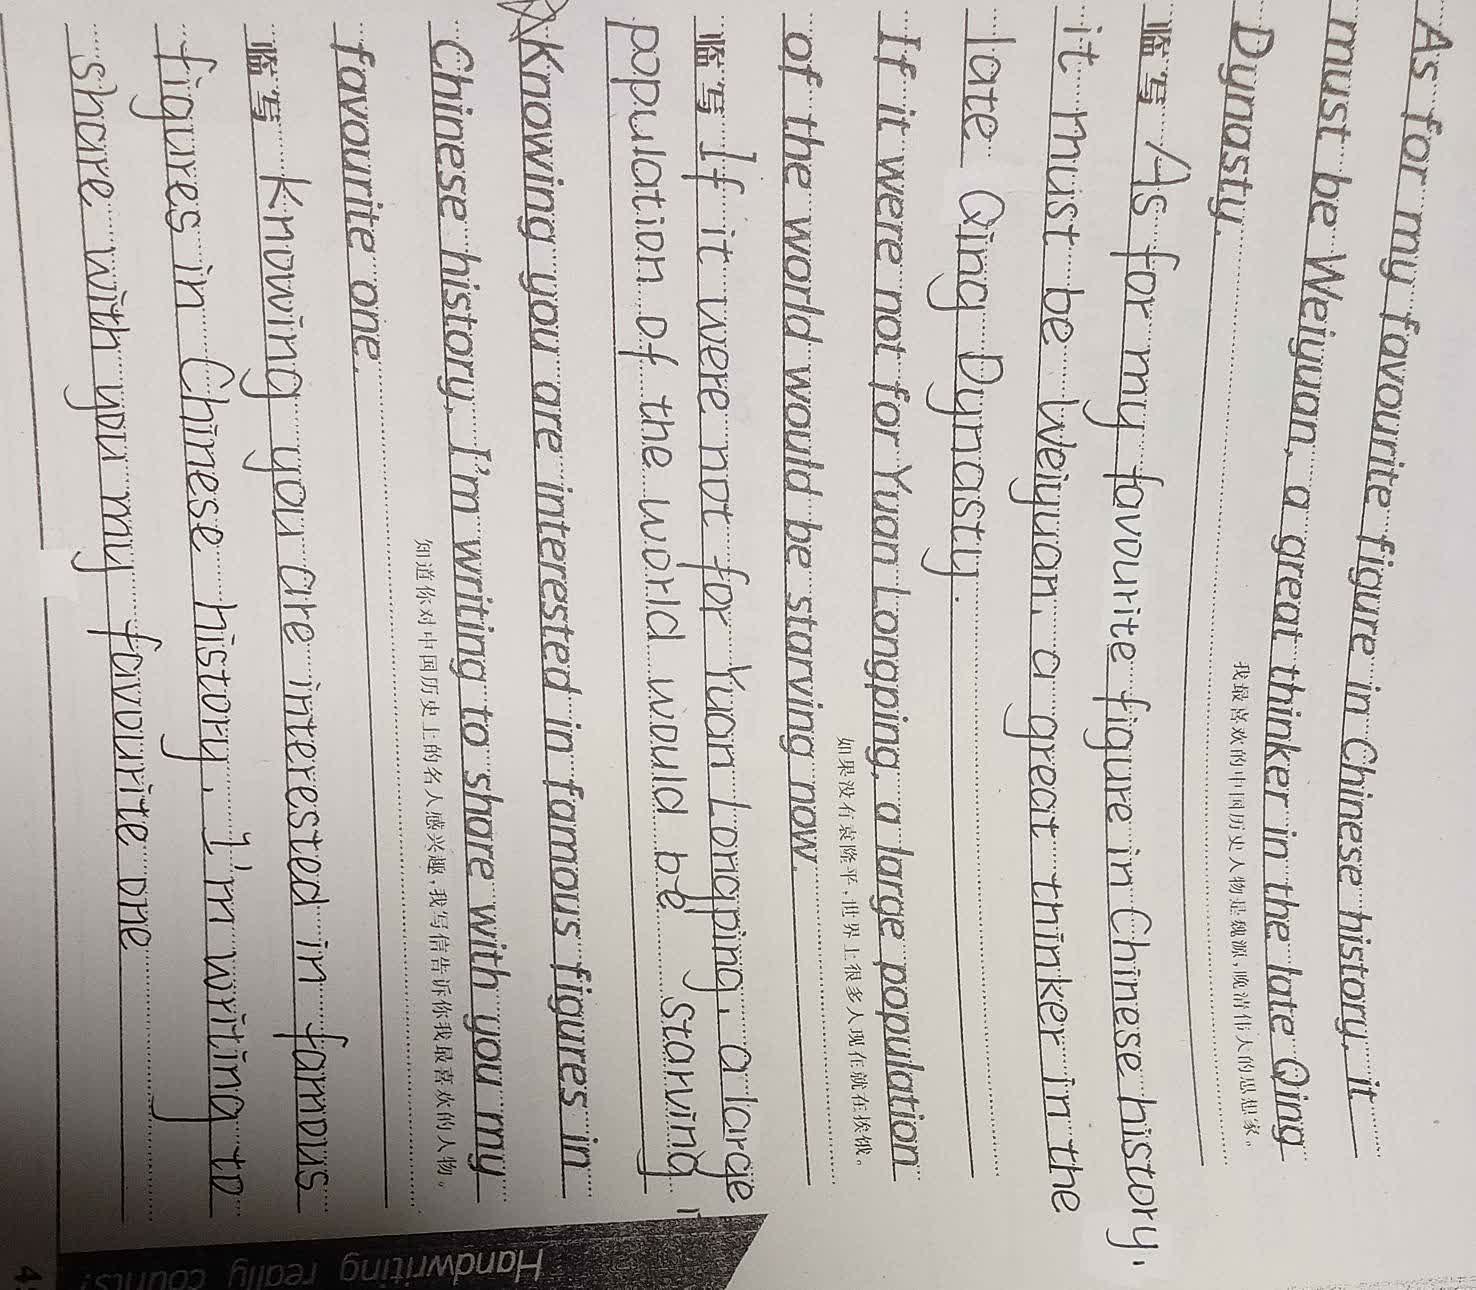 As for my favourite figure in Chinese history, it
must be Weiyuan, a great thinker in the late Qing
Dynasty.
我最喜欢的中国历史人物是魏源,晚清伟大的思想家。
临写 As for my favourite figure in Chinese history,
it must be Weiyuan, a great thinker in the
late Qing Dynasty.
If it were not for Yuan Longping, a large population
of the world would be starving now.
如果没有袁隆平,世界上很多人现在就在挨饿。
临写 If it were not for Yuan Longping, a large
population of the world would be starving
Knowing you are interested in famous figures in
Chinese history, I'm writing to share with you my
favourite one.
知道你对中国历史上的名人感兴趣,我写信告诉你我最喜欢的人物。
临写 Knowing you are interested in famous
figures in Chinese history, I'm writing to
share with you my favourite one
Handwriting really counts!